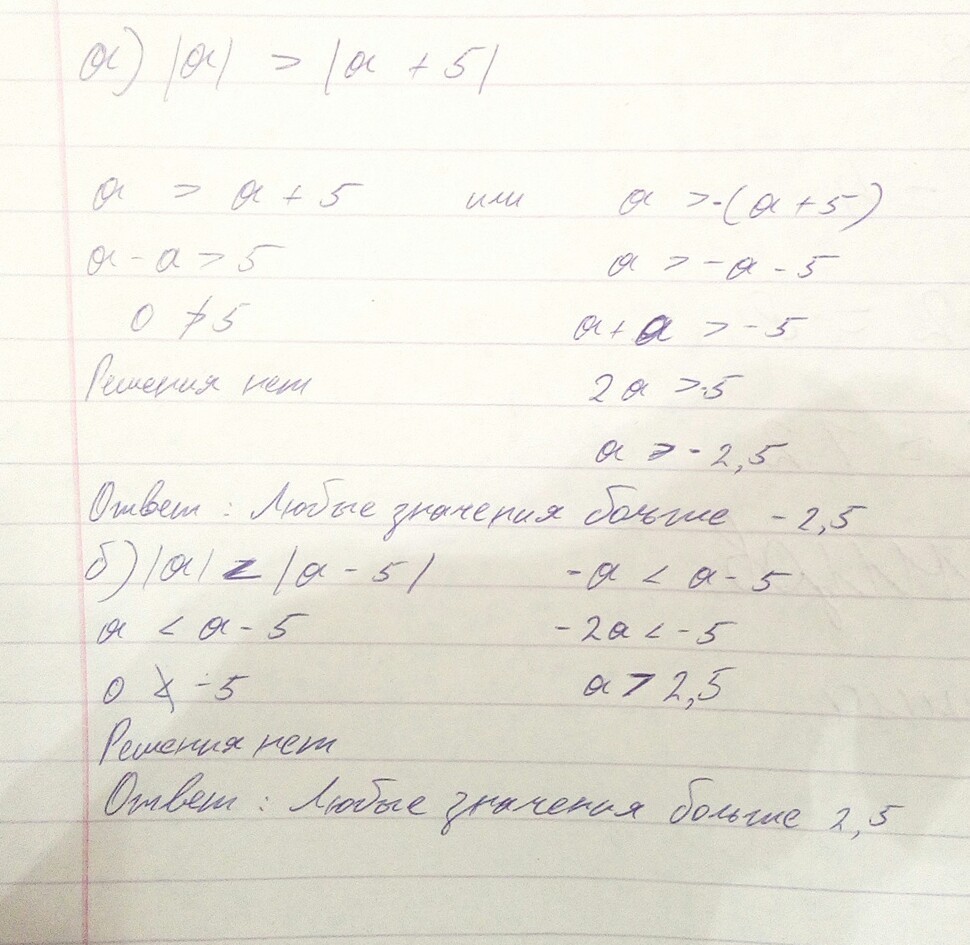 а) |а| > |а + 5|
а > а + 5 или а > -(а + 5)
а - а > 5 а > -а - 5
0 ≯ 5 а + а > -5
Решения нет 2а > -5
а > -2,5
Ответ : Любые значения больше -2,5
б) |а| < |а - 5| -а < а - 5
а < а - 5 -2а < -5
0 ≮ -5 а > 2,5
Решения нет
Ответ : Любые значения больше 2,5